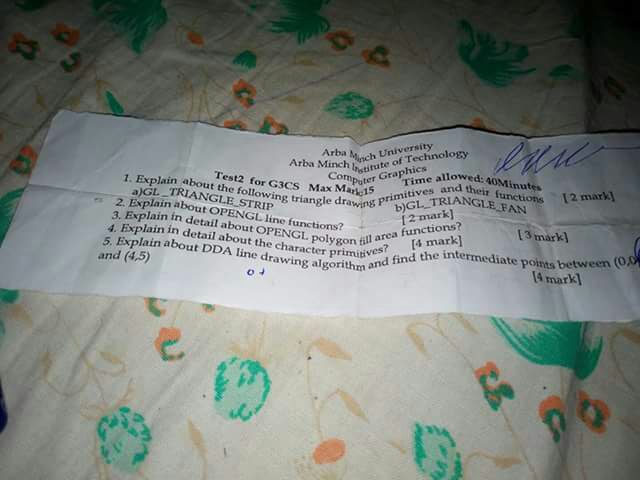 Arba Minch University
Arba Minch Institute of Technology
Computer Graphics
Test2 for G3CS Max Mark:15 Time allowed:40Minutes
1. Explain about the following triangle drawing primitives and their functions [2 mark]
a)GL_TRIANGLE_STRIP b)GL_TRIANGLE_FAN
2. Explain about OPENGL line functions? [2 mark]
3. Explain in detail about OPENGL polygon fill area functions? [3 mark]
4. Explain in detail about the character primitives? [4 mark]
5. Explain about DDA line drawing algorithm and find the intermediate points between (0,0
and (4,5) [4 mark]